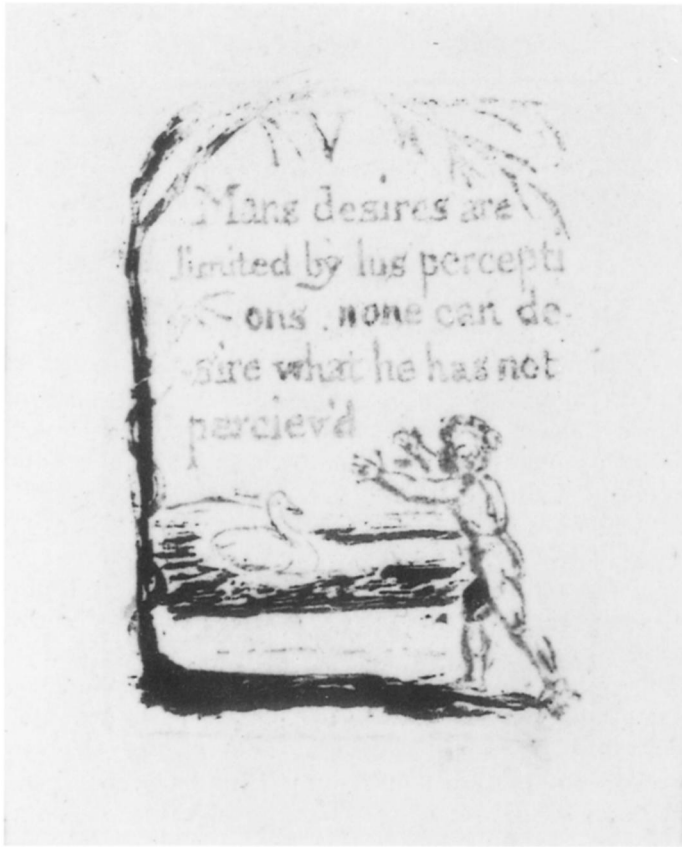 Mans desires are
limited by his percepti
ons. none can de-
sire what he has not
perciev'd